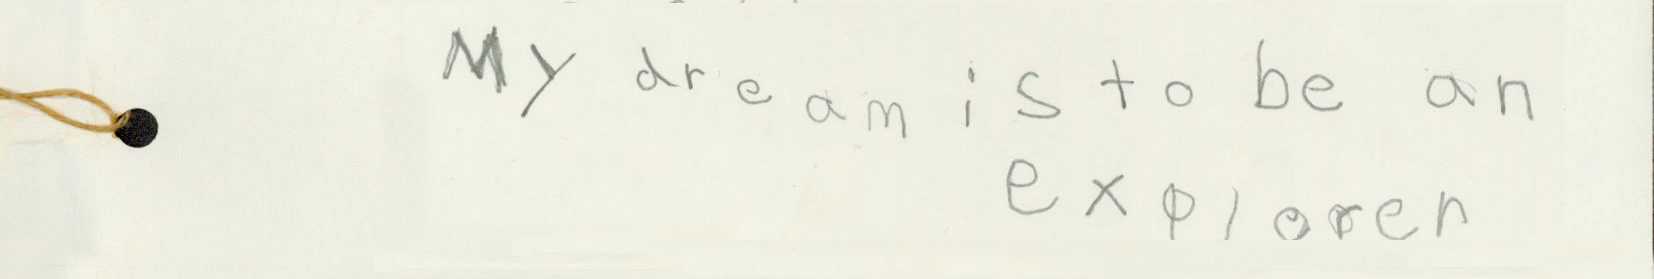 My dream is to be an
explorer